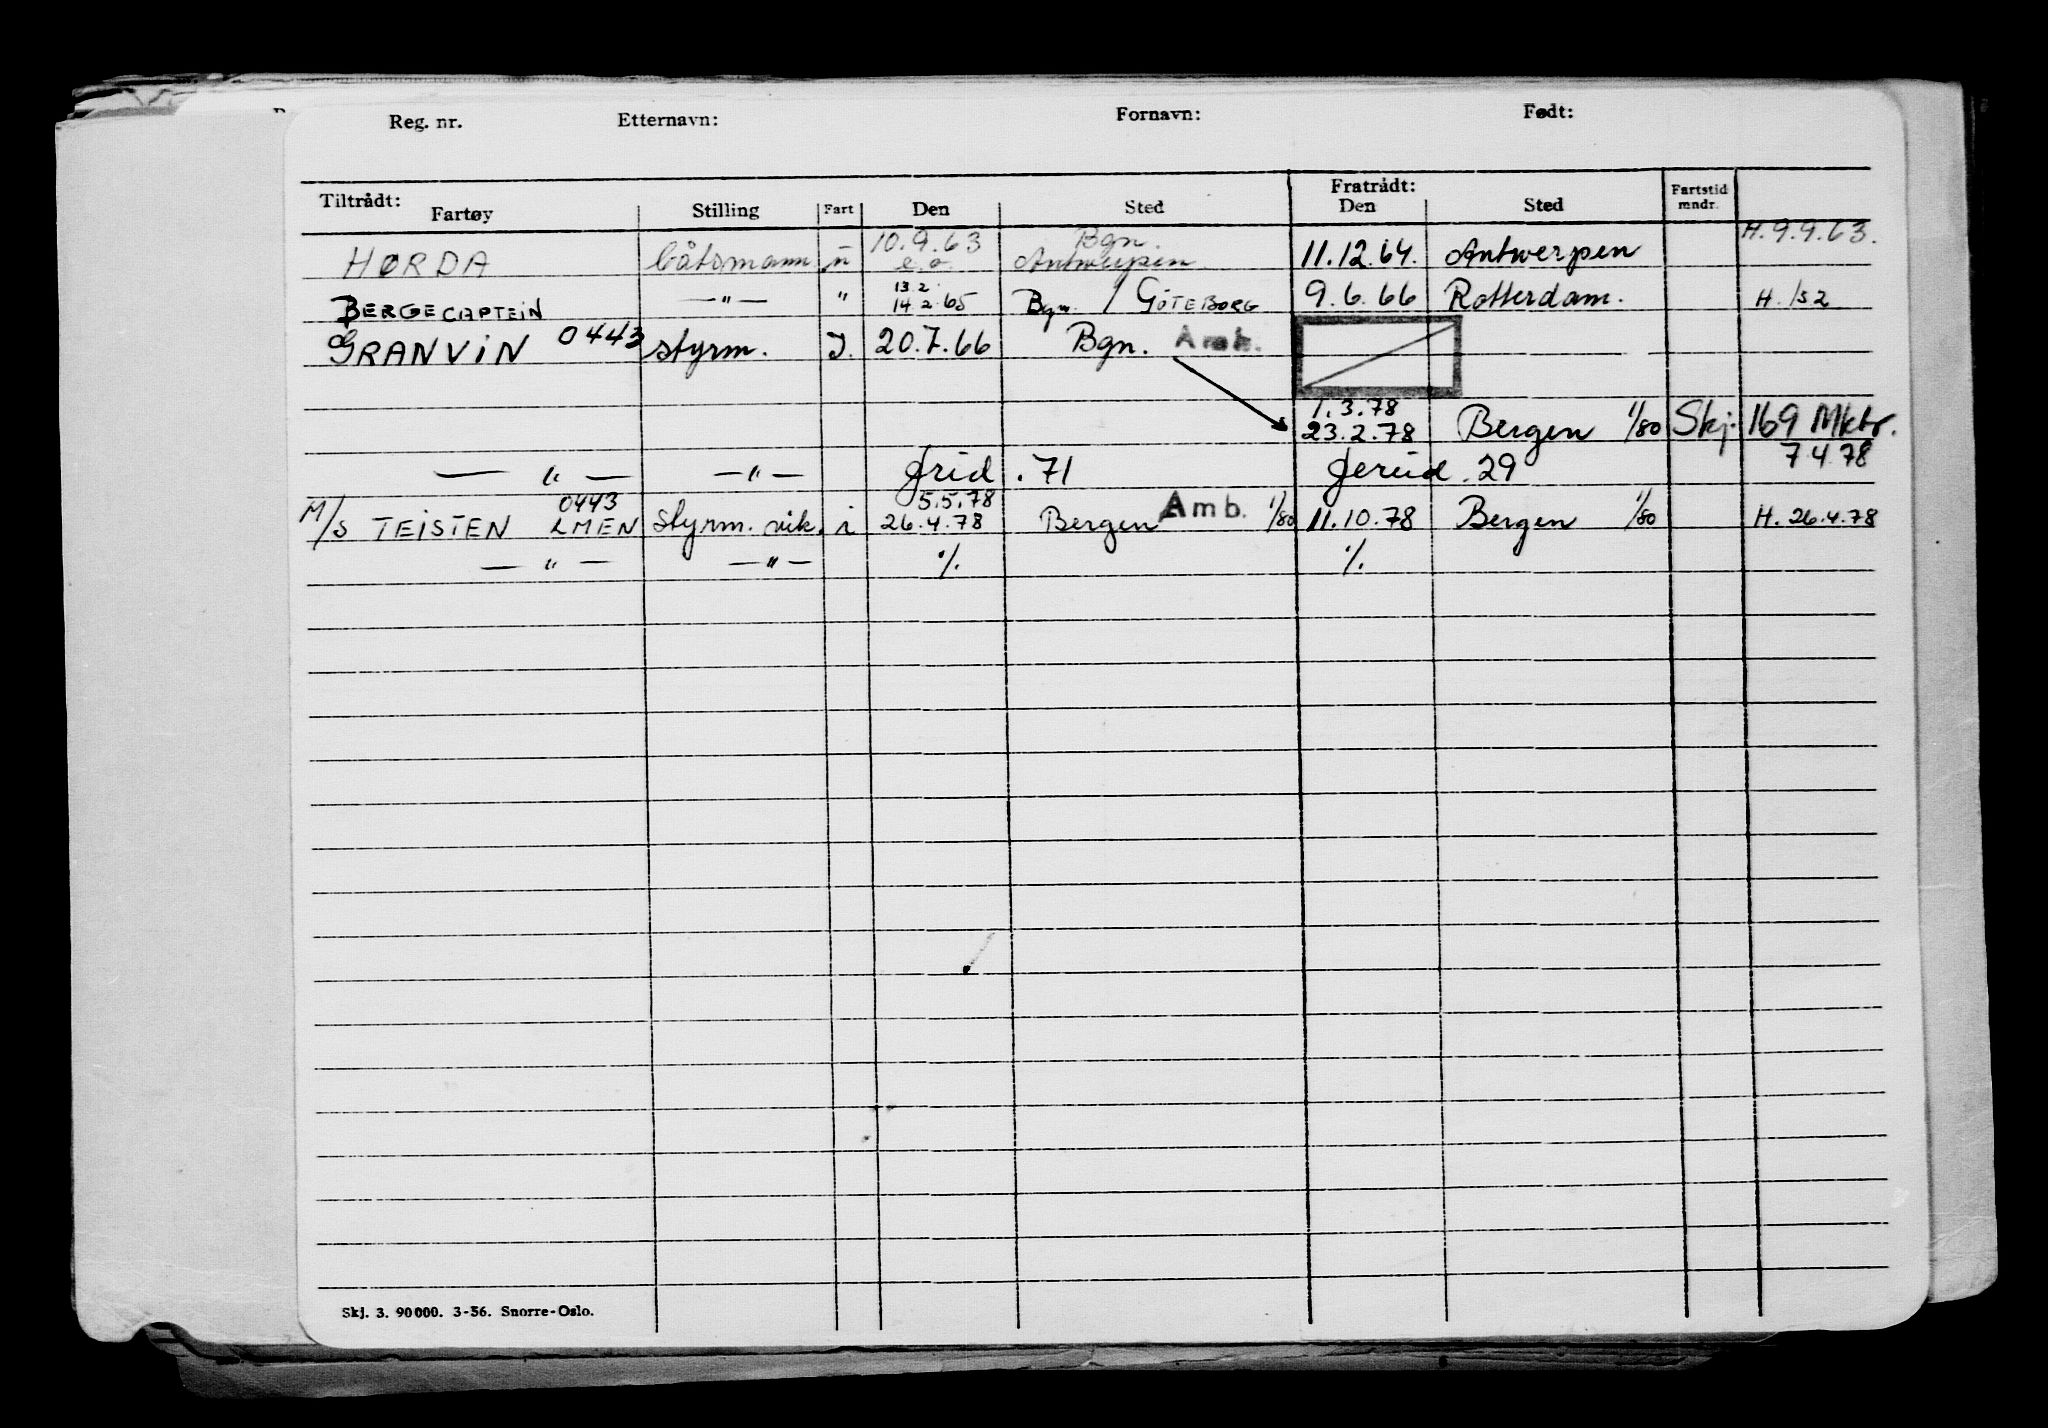 Reg. nr. Etternavn: Fornavn: Født:
Tiltrådt: Fratrådt: Fartstid mndr.
Fartøy Stilling Fart Den Sted Den Sted
10.9.63 Bgn. H. 9.9.63.
HØRDA båtsmann u e.o. Antwerpen 11.12.64. Antwerpen
13.2.
BERGECAPTEIN — " — " 14.2.65 Bgn. / GÖTEBORG 9.6.66 Rotterdam. H. 152
GRANVIN 0443 styrm. J. 20.7.66 Bgn. Amb.
1.3.78
23.2.78 Bergen 1/80 Skj. 169 Mktr.
7.4.78
— " — — " — frid . 71 29
0443 5.5.78
M/S TEISTEN LMEN Styrm. vik. i 26.4.78 Bergen Amb. 1/80 11.10.78 Bergen 1/80 H. 26.4.78
— " — — " — ./. ./.
Skj. 3. 90000. 3-56. Snorre-Oslo.